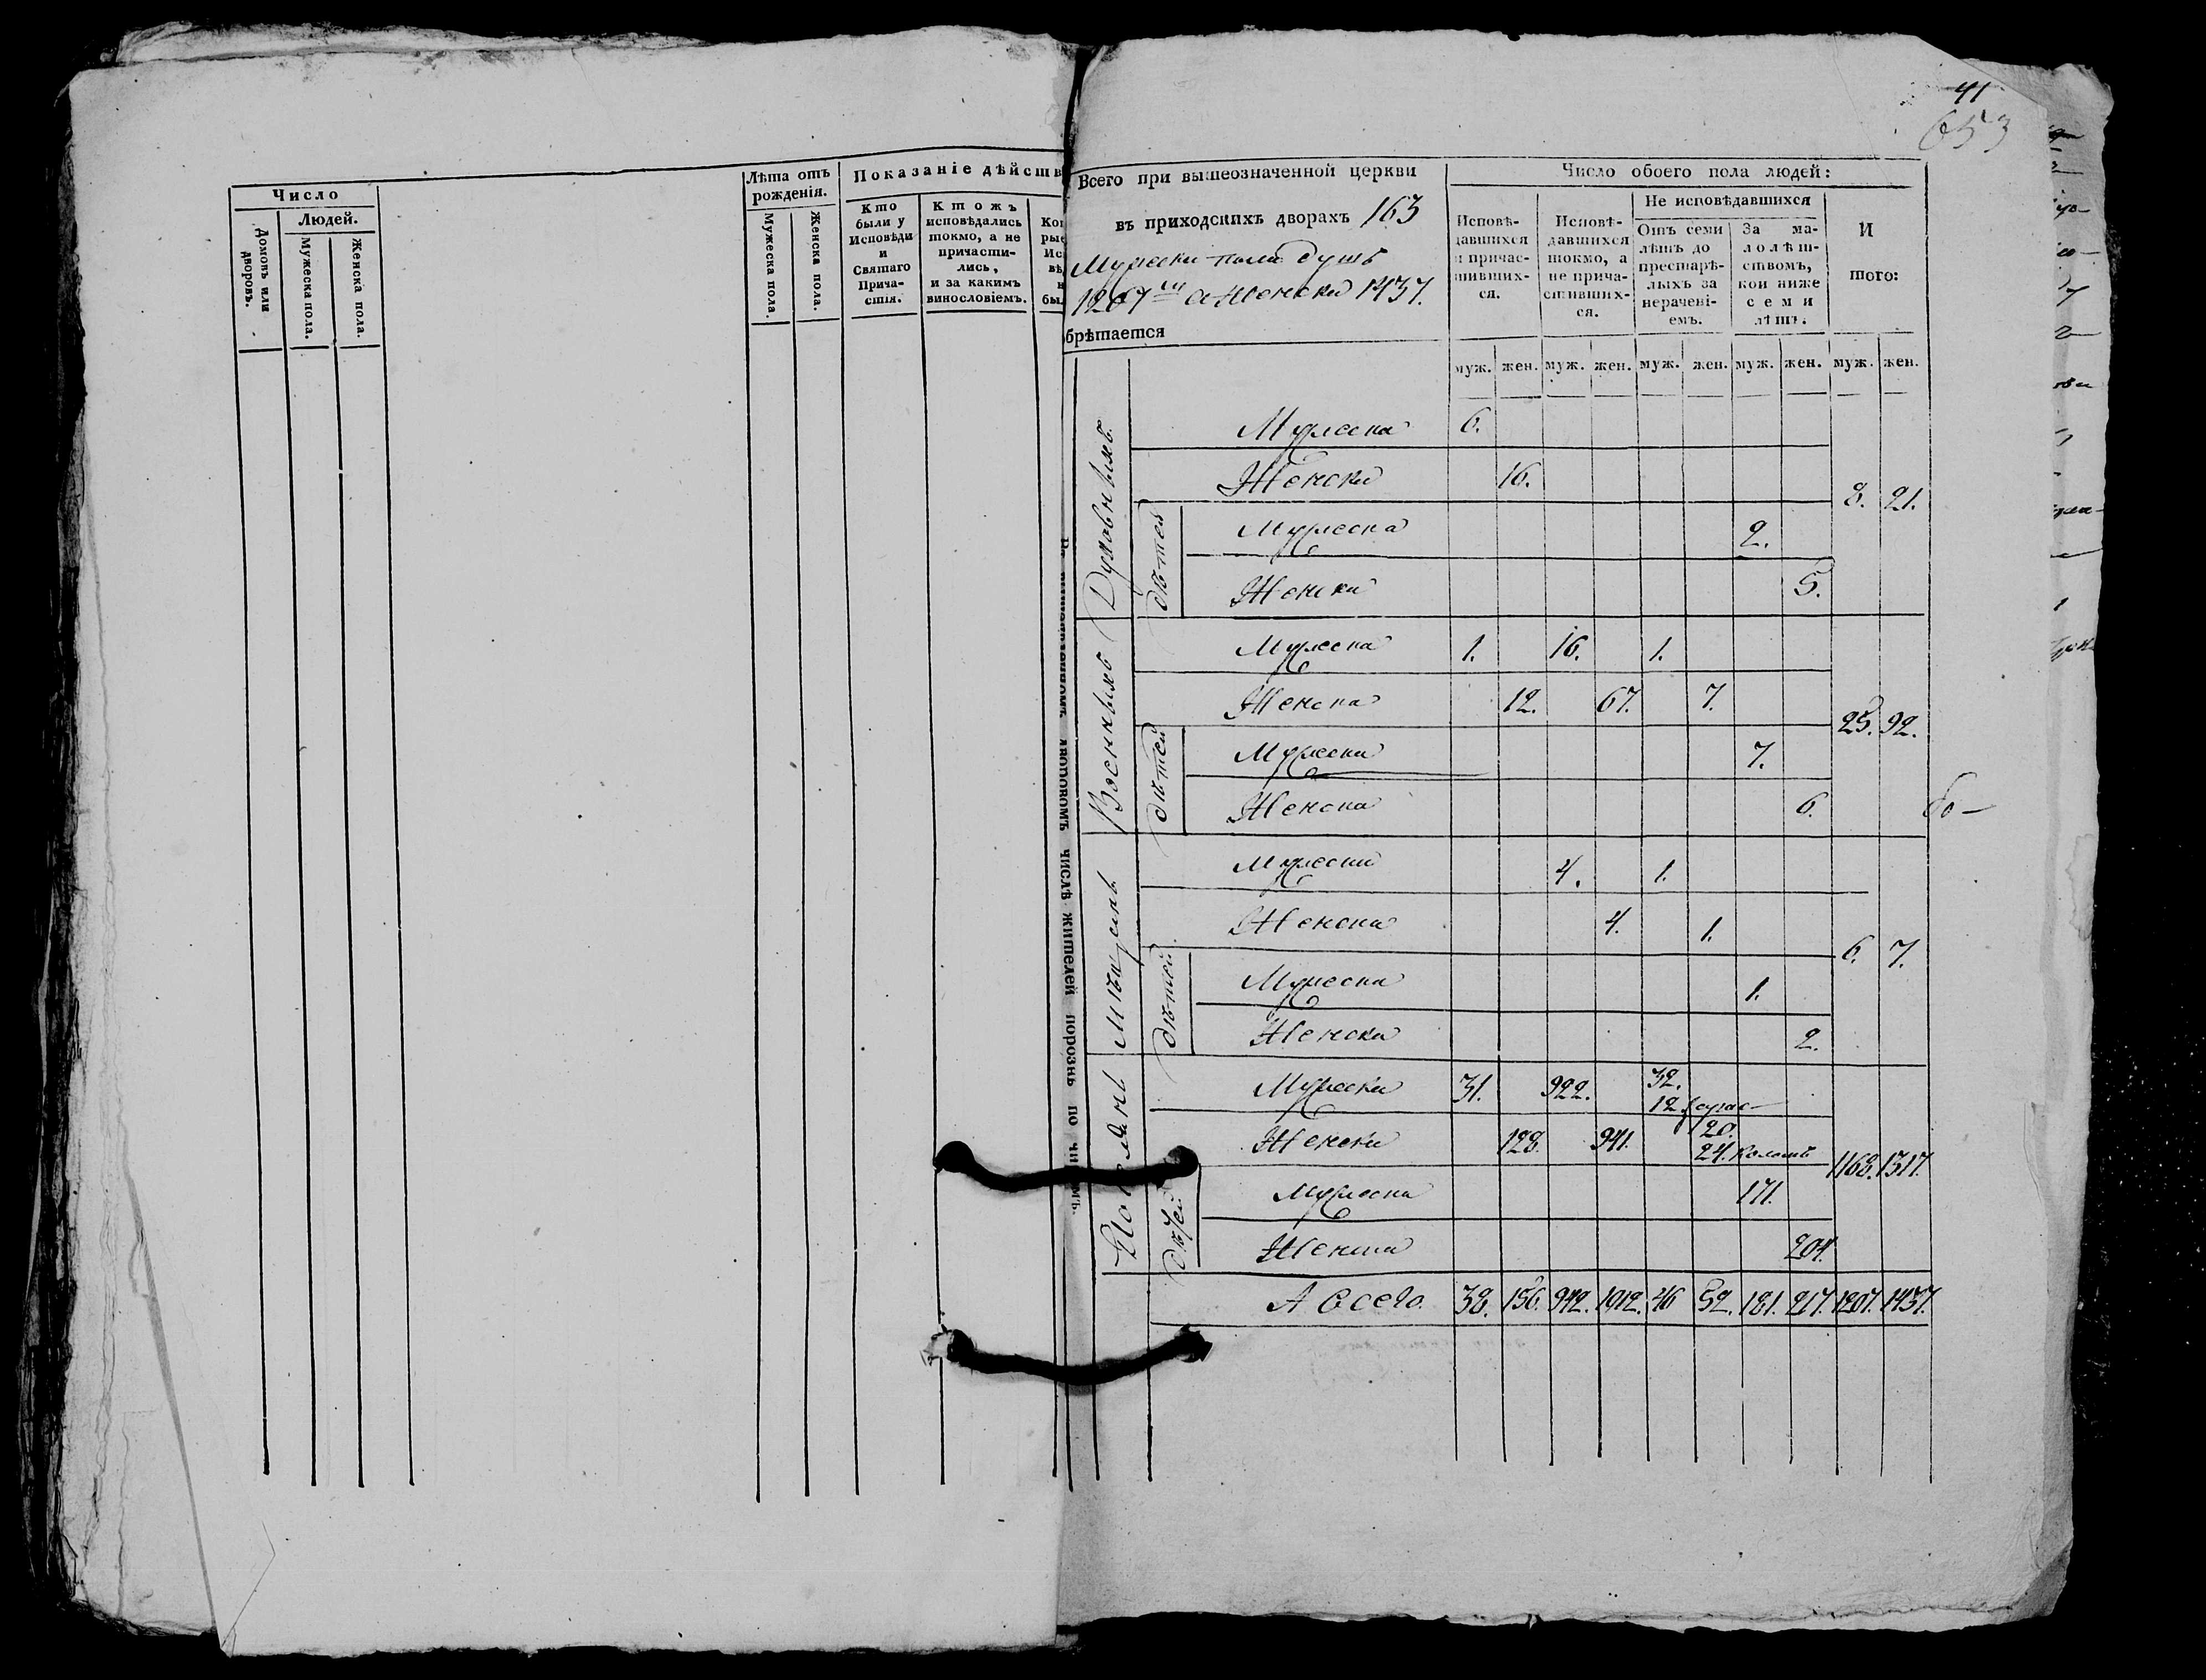 41
653
Число
Людей.
Домовъ или дворовъ.
Мужеска пола.
Женска пола.
Лѣта отъ рожденія.
Мужеска пола.
Женска пола.
Показаніе дѣйств
Кто
были у
Исповѣди
и
Святаго
Прича-
стія.
Ктожъ
исповѣдались
токмо, а не
причасти-
лись,
и за какимъ
винословіемъ.
Ко
ры
Ис
вѣ
н
бы
числѣ жителей порознь по чи
Всего при вышеозначенной церкви
въ приходскихъ дворахъ 163
Мужеска пола душъ
1207 а Женска 1437.
брѣтается
Число обоего пола людей:
Исповѣ-
давшихся
и причас-
тивших-
ся.
Исповѣ-
давшихся
токмо, а
не прича-
стивших-
ся.
Не исповѣдавшихся
Отъ семи
лѣтъ до
престарѣ-
лыхъ за
нерачені-
емъ.
За ма-
лолѣт-
ствомъ,
кои ниже
семи
лѣтъ.
И
того:
муж. жен. муж. жен. муж. жен. муж. жен. муж. жен.
Духовныхъ
Мужеска 6.
Женска 16.
8. 21.
дѣтей
Мужеска 2.
Женска 5.
Военныхъ
Мужеска 1. 16. 1.
Женска 12. 67. 7.
25. 92.
дѣтей
Мужеска 7.
Женска 6.
Мѣщанъ
Мужеска 4. 1.
Женска 4. 1.
6. 7.
дѣтей
Мужеска 1.
Женска 2.
Мужеска 31. 922. 32.
12
Женска 128. 941. 20.
24.
1168. 1317.
дѣтей
Мужеска 171.
Женска 204.
А всего. 38. 156. 942. 1012. 46 52. 181. 217. 1207. 1437.